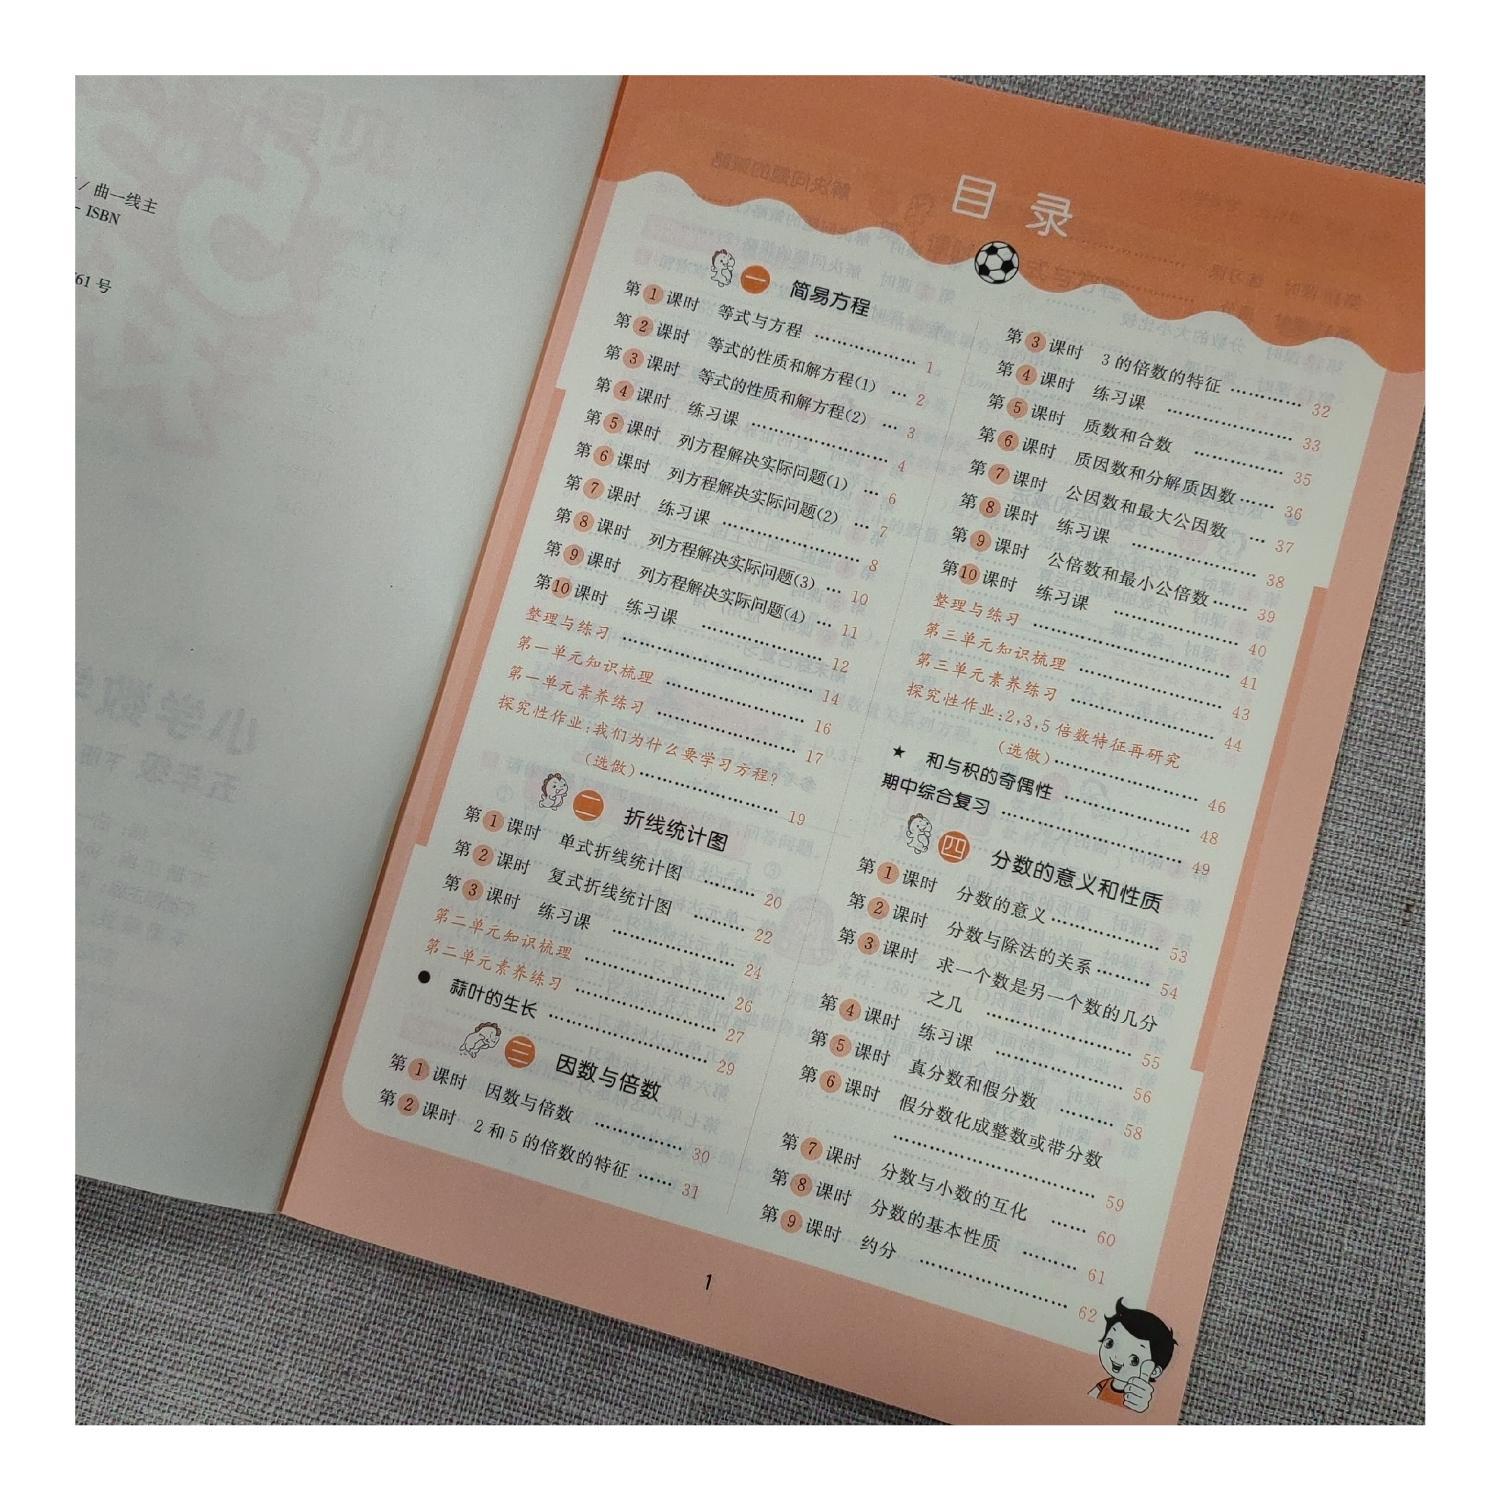 / 曲一线主
- ISBN
61 号
目录
一 简易方程
第1课时 等式与方程 ……………… 1
第2课时 等式的性质和解方程(1) … 2
第3课时 等式的性质和解方程(2) … 3
第4课时 练习课 …………………… 4
第5课时 列方程解决实际问题(1) … 6
第6课时 列方程解决实际问题(2) … 7
第7课时 练习课 …………………… 8
第8课时 列方程解决实际问题(3) … 10
第9课时 列方程解决实际问题(4) … 11
第10课时 练习课 …………………… 12
整理与练习 …………………………… 14
第一单元知识梳理 …………………… 16
第一单元素养练习 …………………… 17
探究性作业:我们为什么要学习方程?
(选做) …………………… 19
二 折线统计图
第1课时 单式折线统计图 ……… 20
第2课时 复式折线统计图 ……… 22
第3课时 练习课 ………………… 24
第二单元知识梳理 ………………… 26
第二单元素养练习 ………………… 27
● 蒜叶的生长 …………………… 29
三 因数与倍数
第1课时 因数与倍数 …………… 30
第2课时 2和5的倍数的特征 …… 31
第3课时 3的倍数的特征 ………… 32
第4课时 练习课 ………………… 33
第5课时 质数和合数 …………… 35
第6课时 质因数和分解质因数 …… 36
第7课时 公因数和最大公因数 … 37
第8课时 练习课 ………………… 38
第9课时 公倍数和最小公倍数 …… 39
第10课时 练习课 ………………… 40
整理与练习 ………………………… 41
第三单元知识梳理 ………………… 43
第三单元素养练习 ………………… 44
探究性作业:2,3,5倍数特征再研究
(选做) ………………… 46
★ 和与积的奇偶性 ……………… 48
期中综合复习 ……………………… 49
四 分数的意义和性质
第1课时 分数的意义 …………… 53
第2课时 分数与除法的关系 ……… 54
第3课时 求一个数是另一个数的几分
之几 ………………… 55
第4课时 练习课 ………………… 56
第5课时 真分数和假分数 ……… 58
第6课时 假分数化成整数或带分数
………………………… 59
第7课时 分数与小数的互化 …… 60
第8课时 分数的基本性质 ……… 61
第9课时 约分 …………………… 62
1